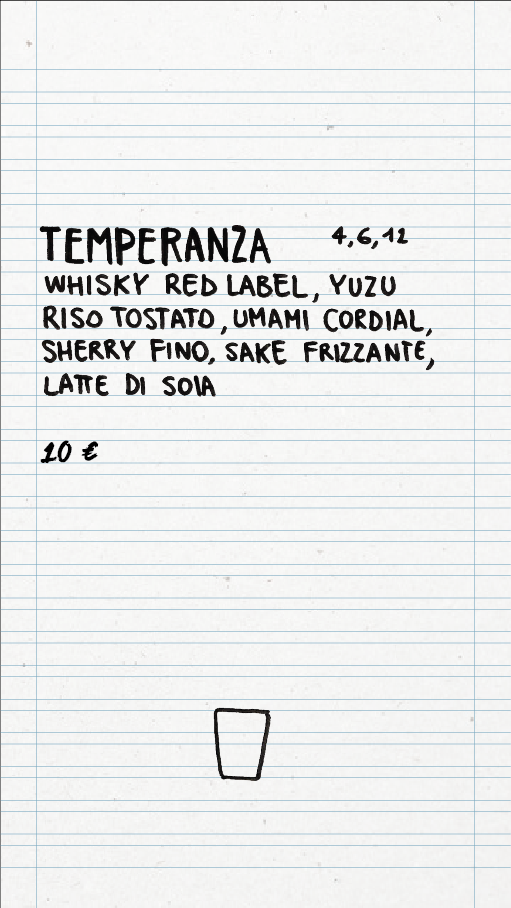 TEMPERANZA 4,6,12
WHISKY RED LABEL, YUZU
RISO TOSTATO, UMAMI CORDIAL,
SHERRY FINO, SAKE FRIZZANTE,
LATTE DI SOIA
10 €